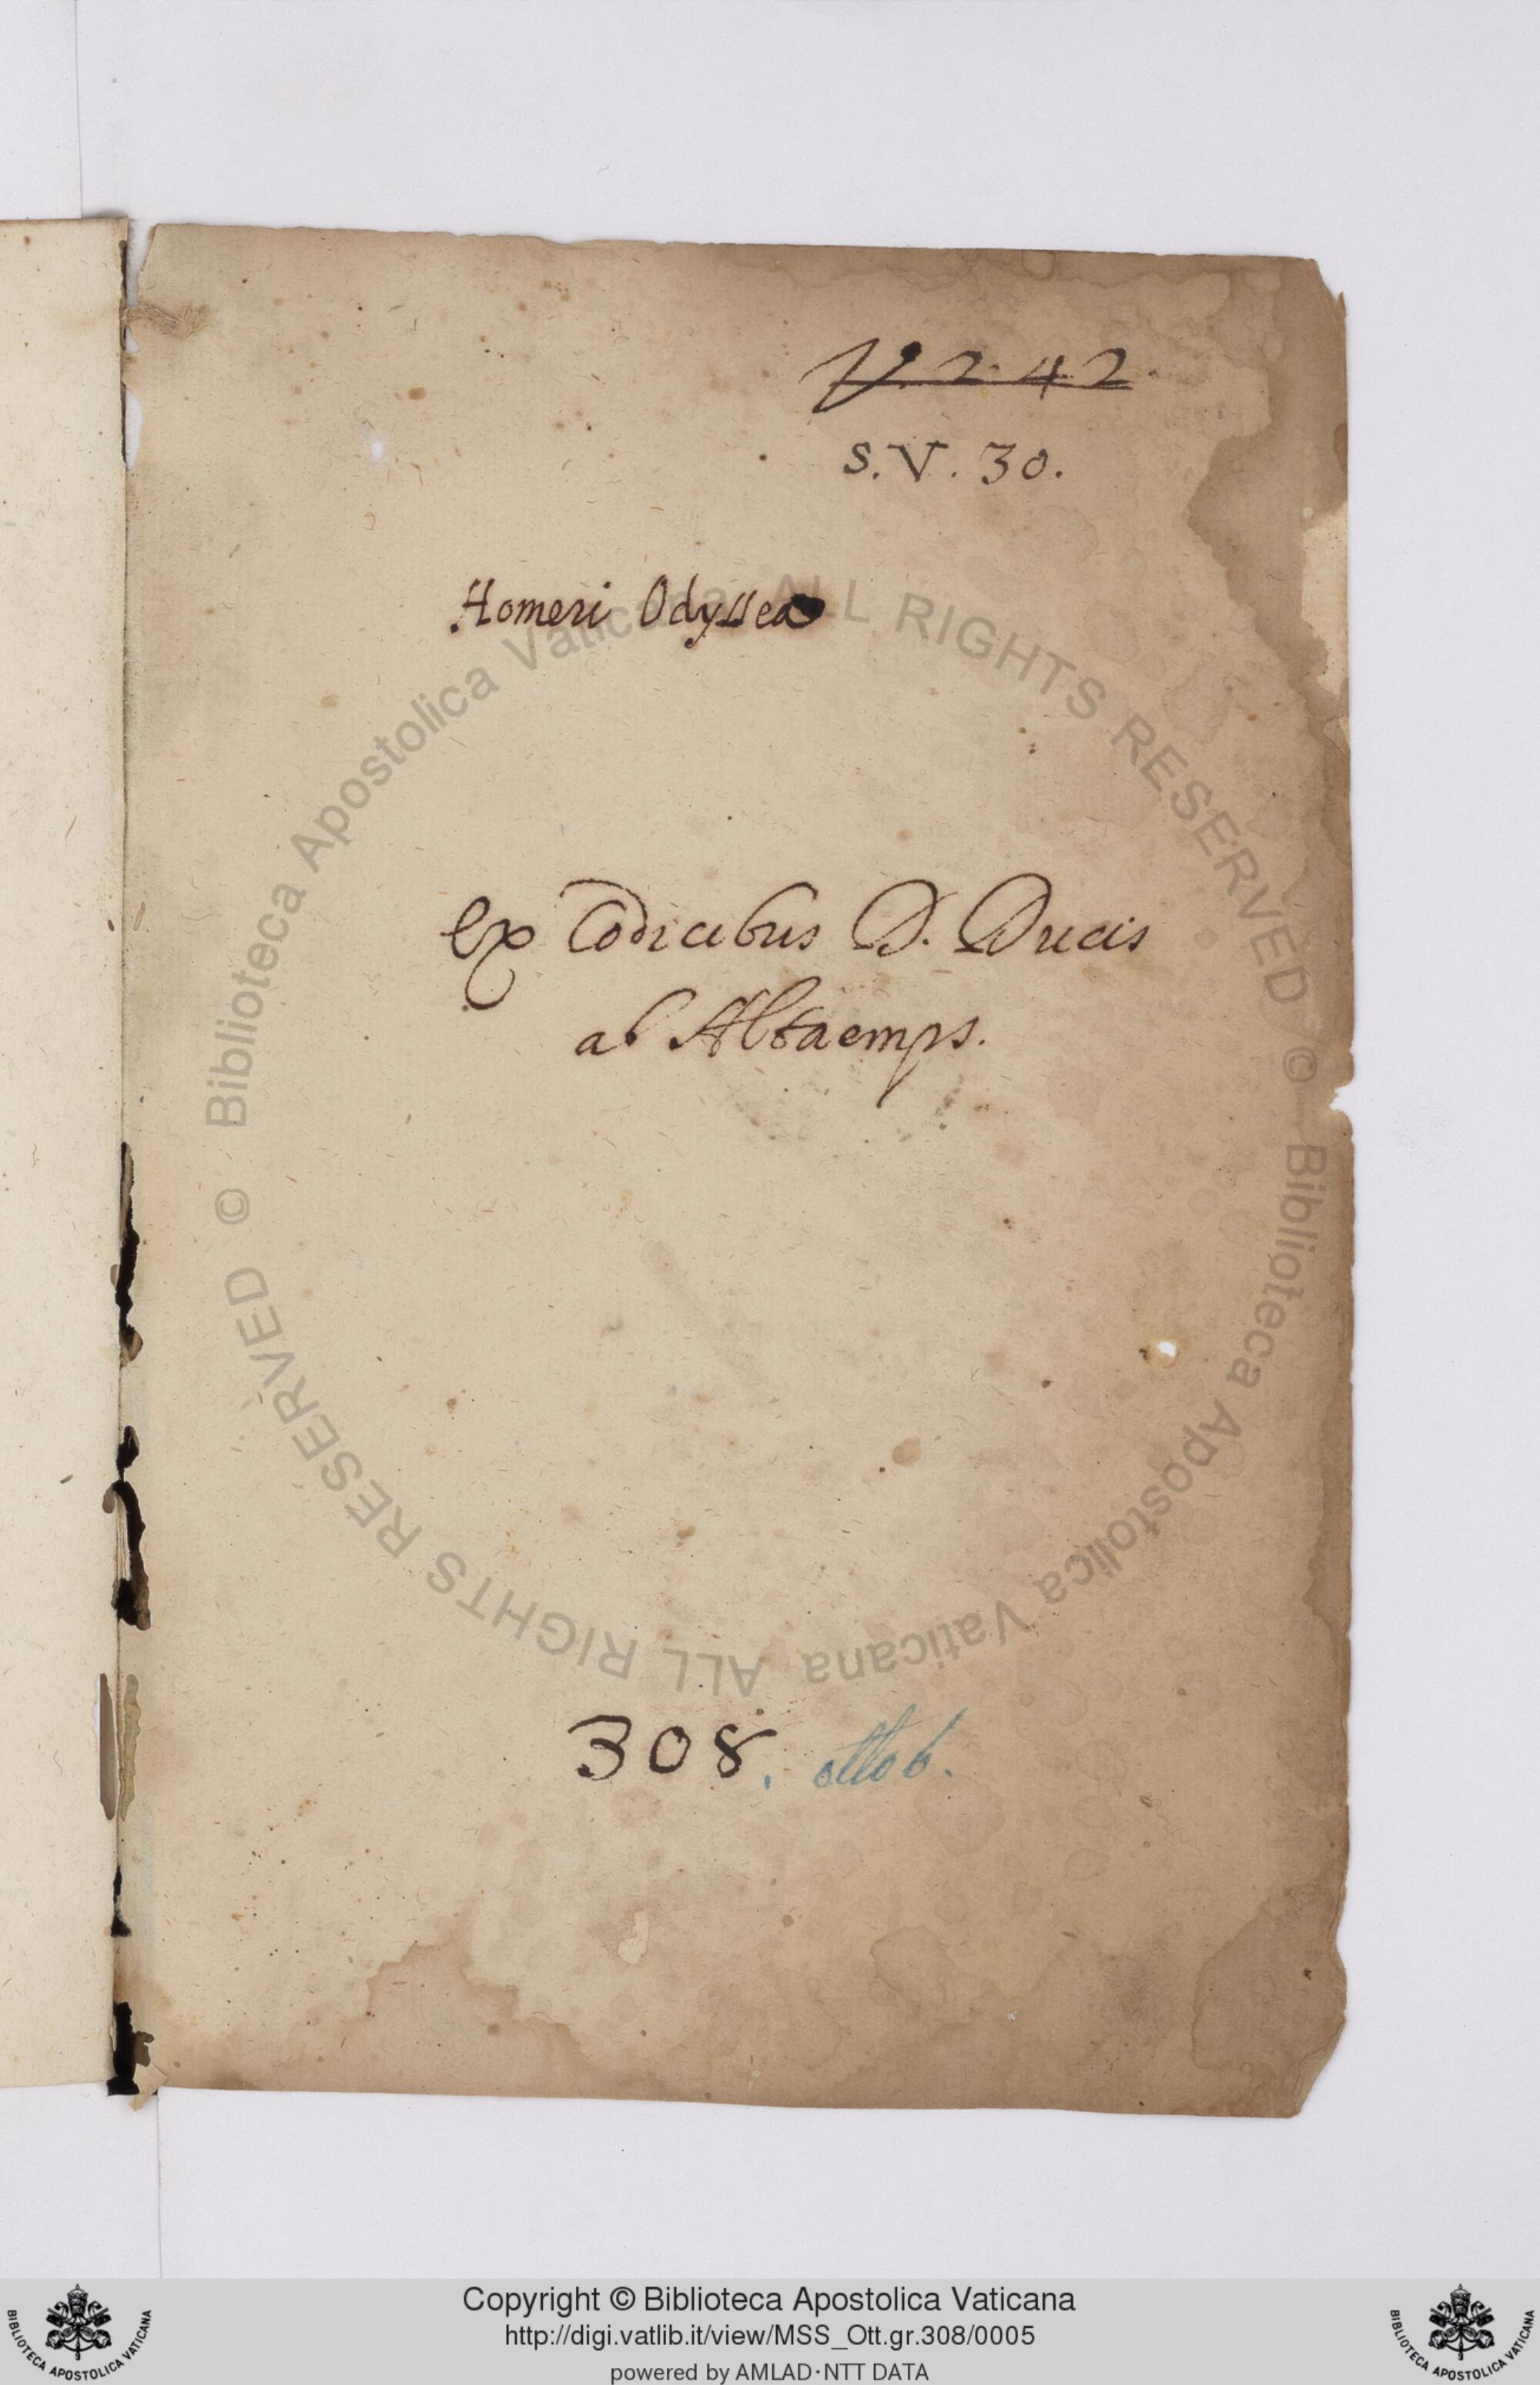 V. 2. 42.
S. V. 30.
Homeri Odyssea
Ex Codicibus D. Ducis
ab Altaemps.
308. ottob.
© Biblioteca Apostolica Vaticana ALL RIGHTS RESERVED © Biblioteca Apostolica Vaticana ALL RIGHTS RESERVED
Copyright © Biblioteca Apostolica Vaticana
http://digi.vatlib.it/view/MSS_Ott.gr.308/0005
powered by AMLAD·NTT DATA
BIBLIOTECA APOSTOLICA VATICANA
BIBLIOTECA APOSTOLICA VATICANA